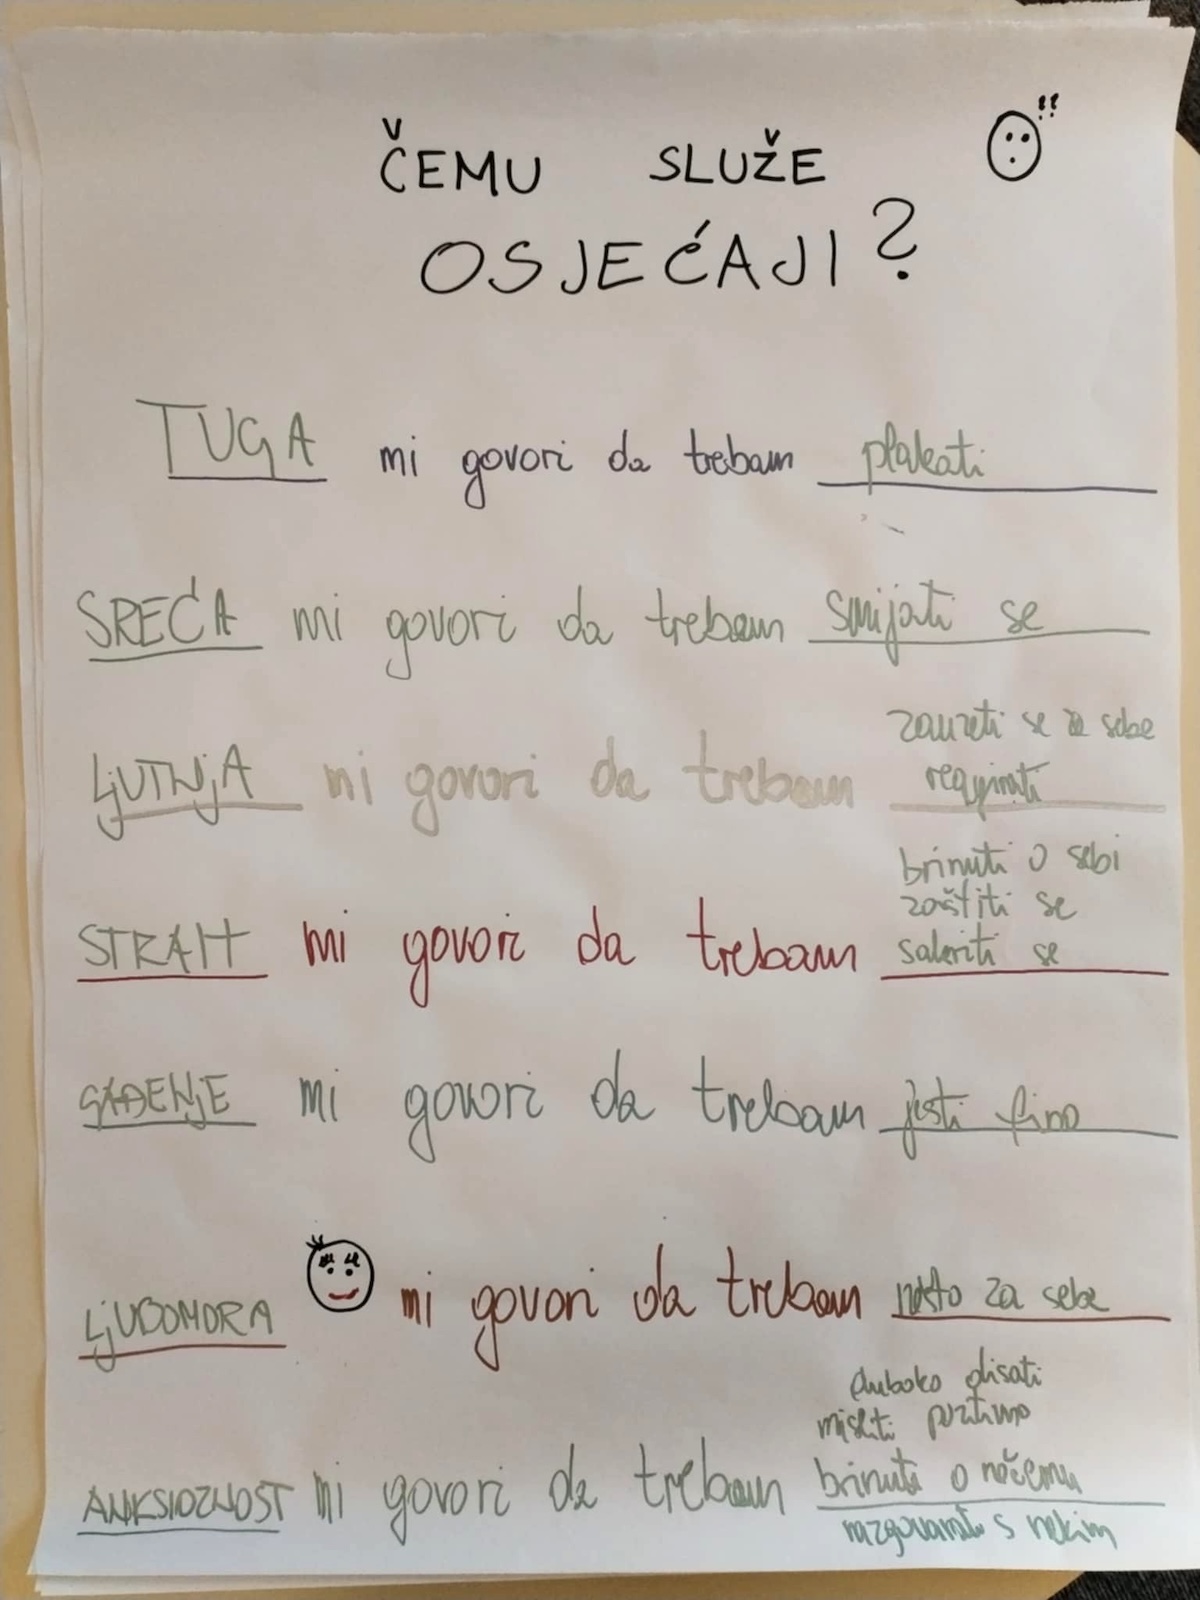 ČEMU SLUŽE
OSJEĆAJI?
TUGA mi govori da trebam plakati
SREĆA mi govori da trebam smijati se
zauzeti se za sebe
LJUTNJA mi govori da trebam reagirati
brinuti o sebi
zaštiti se
STRAH mi govori da trebam sakriti se
GAĐENJE mi govori da trebam jesti fino
LJUBOMORA mi govori da trebam nešto za sebe
duboko disati
misliti pozitivno
ANKSIOZNOST mi govori da trebam brinuti o nečemu
razgovarati s nekim